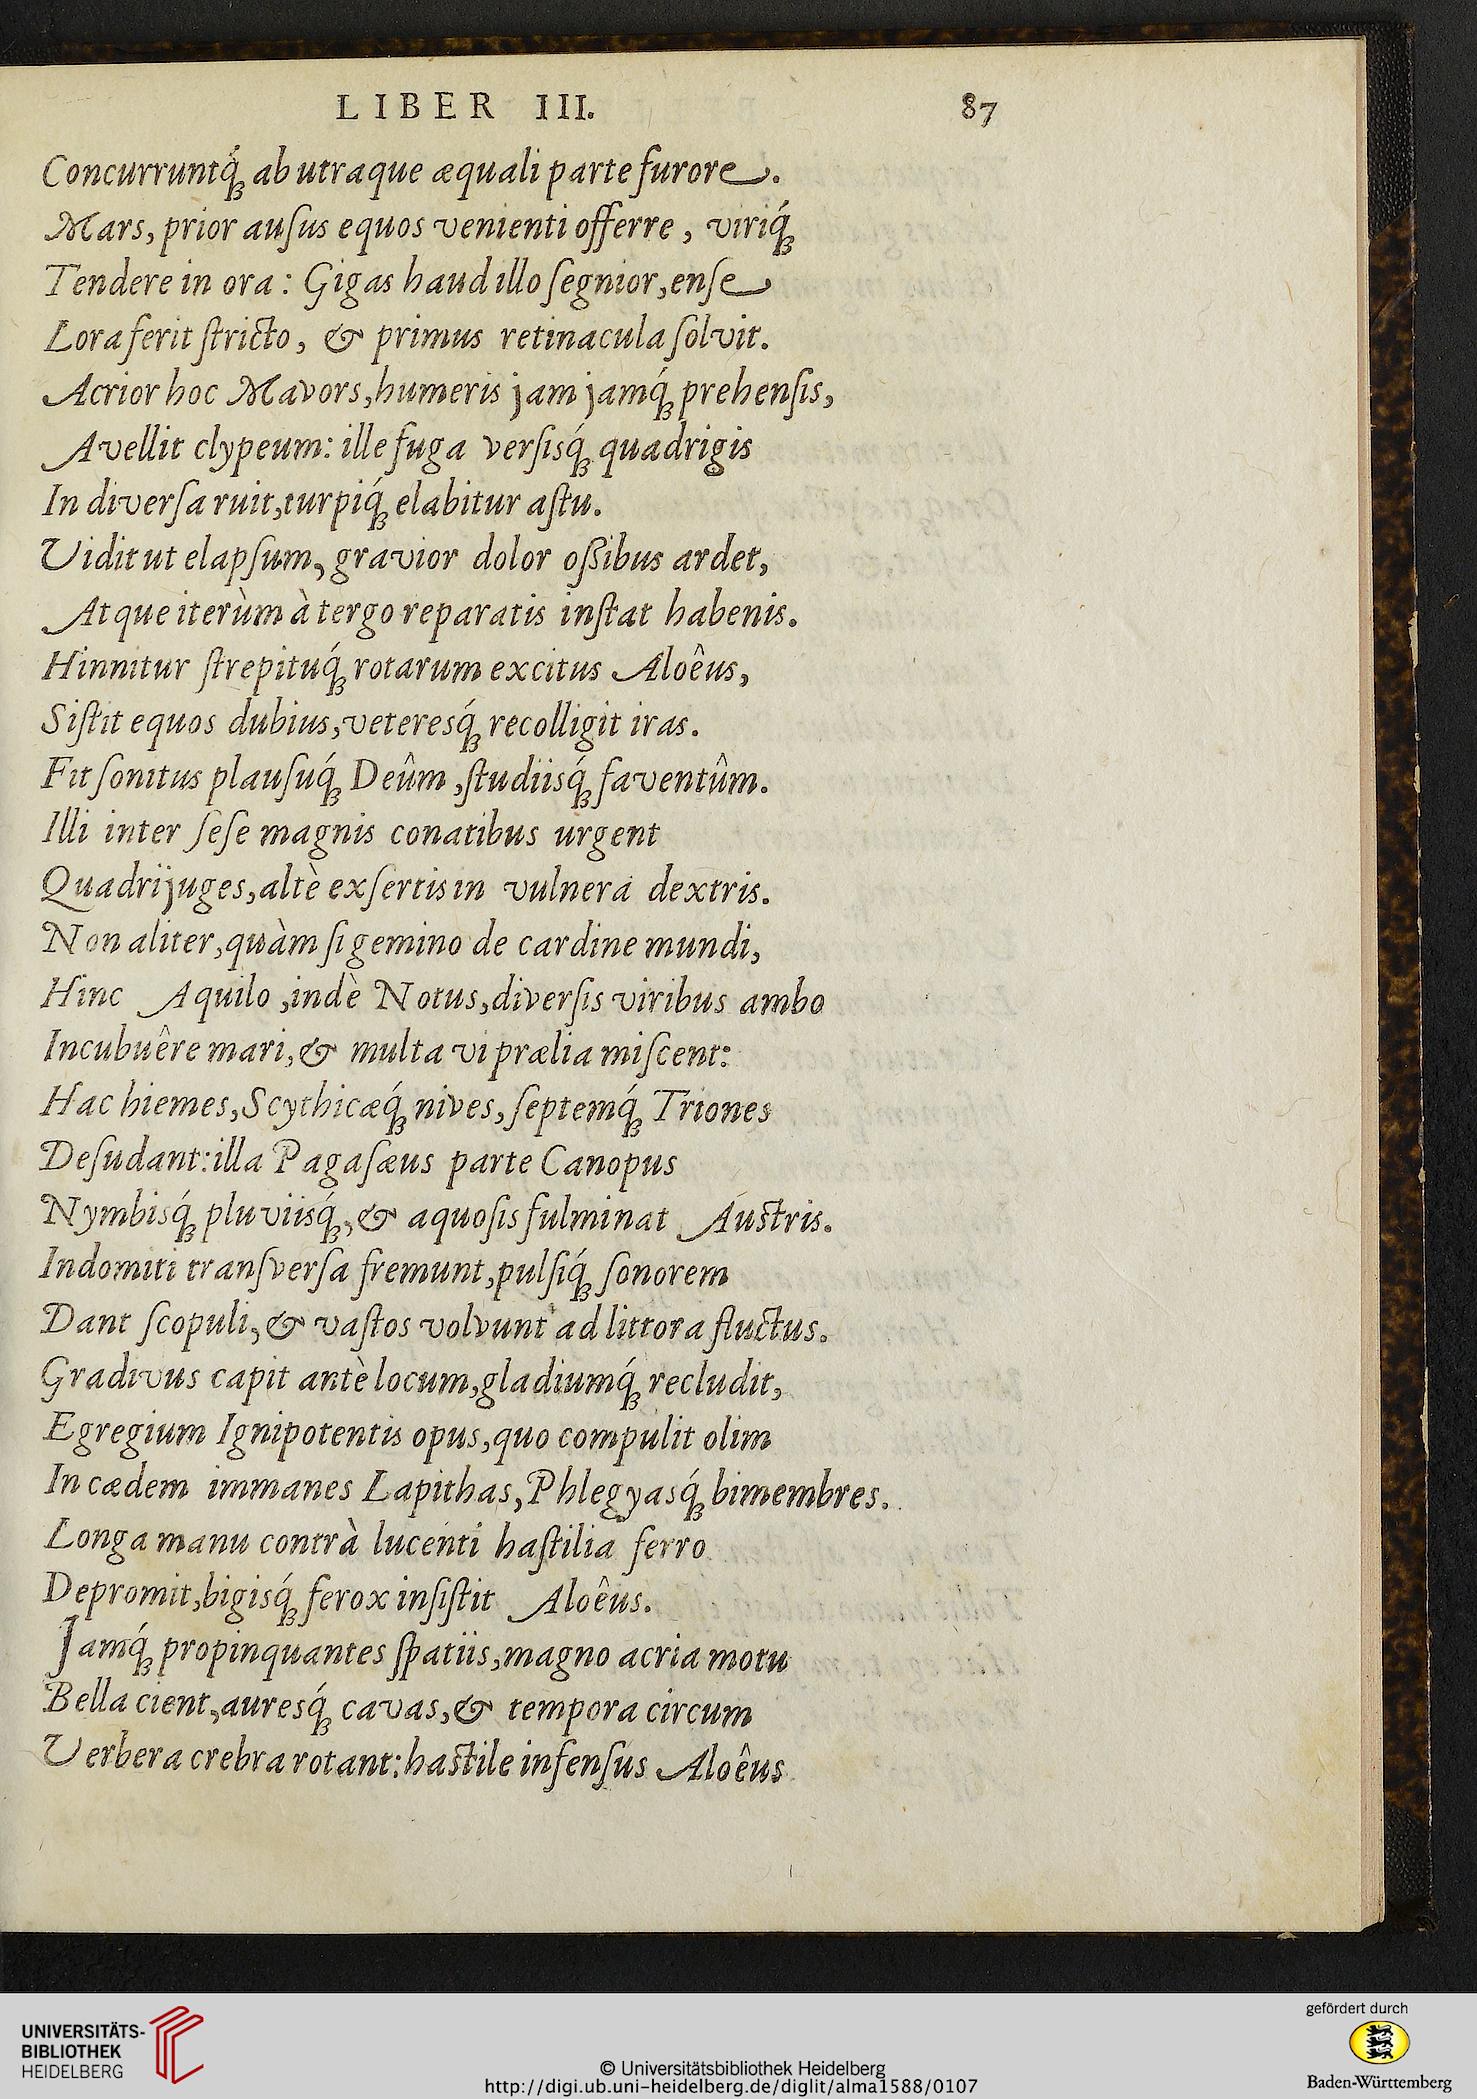 LIBER III. 87
Concurruntq́ꝫ ab utraque æquali parte furore.
Mars, prior auſus equos venienti offerre, viriq́ꝫ
Tendere in ora: Gigas haud illo ſegnior, enſe
Lora ferit ſtricto, & primus retinacula ſolvit.
Acrior hoc Mavors, humeris jam jamq́ꝫ prehenſis,
Avellit clypeum: ille fuga verſisq́ꝫ quadrigis
In diverſa ruit, turpiq́ꝫ elabitur aſtu.
Vidit ut elapſum, gravior dolor oſsibus ardet,
Atque iterùm à tergo reparatis inſtat habenis.
Hinnitur ſtrepituq́ꝫ rotarum excitus Aloêus,
Siſtit equos dubius, veteresq́ꝫ recolligit iras.
Fit ſonitus plauſuq́ꝫ Deûm, ſtudiisq́ꝫ faventûm.
Illi inter ſeſe magnis conatibus urgent
Quadrijuges, altè exſertis in vulnera dextris.
Non aliter, quàm ſi gemino de cardine mundi,
Hinc Aquilo, indè Notus, diverſis viribus ambo
Incubuêre mari, & multa vi prælia miſcent:
Hac hiemes, Scythicæq́ꝫ nives, ſeptemq́ꝫ Triones
Deſudant: illa Pagaſæus parte Canopus
Nymbisq́ꝫ pluviisq́ꝫ, & aquoſis fulminat Auſtris.
Indomiti tranſverſa fremunt, pulſiq́ꝫ ſonorem
Dant ſcopuli, & vaſtos volvunt ad littora fluctus.
Gradivus capit antè locum, gladiumq́ꝫ recludit,
Egregium Ignipotentis opus, quo compulit olim
In cædem immanes Lapithas, Phlegyasq́ꝫ bimembres.
Longa manu contrà lucenti haſtilia ferro
Depromit, bigisq́ꝫ ferox inſiſtit Aloêus.
Jamq́ꝫ propinquantes ſpatiis, magno acria motu
Bella cient, auresq́ꝫ cavas, & tempora circum
Verbera crebra rotant: haſtile infenſus Aloêus
UNIVERSITÄTS-
BIBLIOTHEK
HEIDELBERG
© Universitätsbibliothek Heidelberg
http://digi.ub.uni-heidelberg.de/diglit/alma1588/0107
gefördert durch
Baden-Württemberg